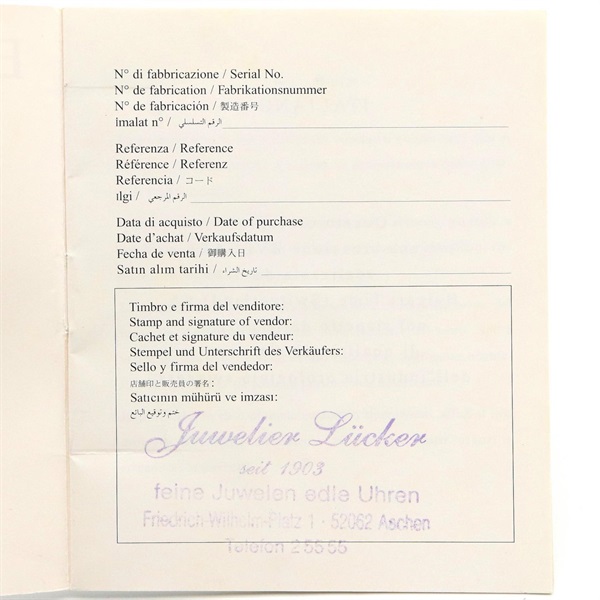 N° di fabbricazione / Serial No.
N° de fabrication / Fabrikationsnummer
N° de fabricación / 製造番号
îmalat n° / الرقم التسلسلي
Referenza / Reference
Référence / Referenz
Referencia / コード
ılgi / الرقم المرجعي
Data di acquisto / Date of purchase
Date d'achat / Verkaufsdatum
Fecha de venta / 御購入日
Satın alim tarihi / تاريخ الشراء
Timbro e firma del venditore:
Stamp and signature of vendor:
Cachet et signature du vendeur:
Stempel und Unterschrift des Verkäufers:
Sello y firma del vendedor:
店舗印と販売員の署名:
Satıcının mühürü ve imzası:
ختم وتوقيع البائع
Juwelier Lücker
seit 1903
feine Juwelen edle Uhren
Friedrich-Wilhelm-Platz 1 · 52062 Aachen
Telefon 2 55 55